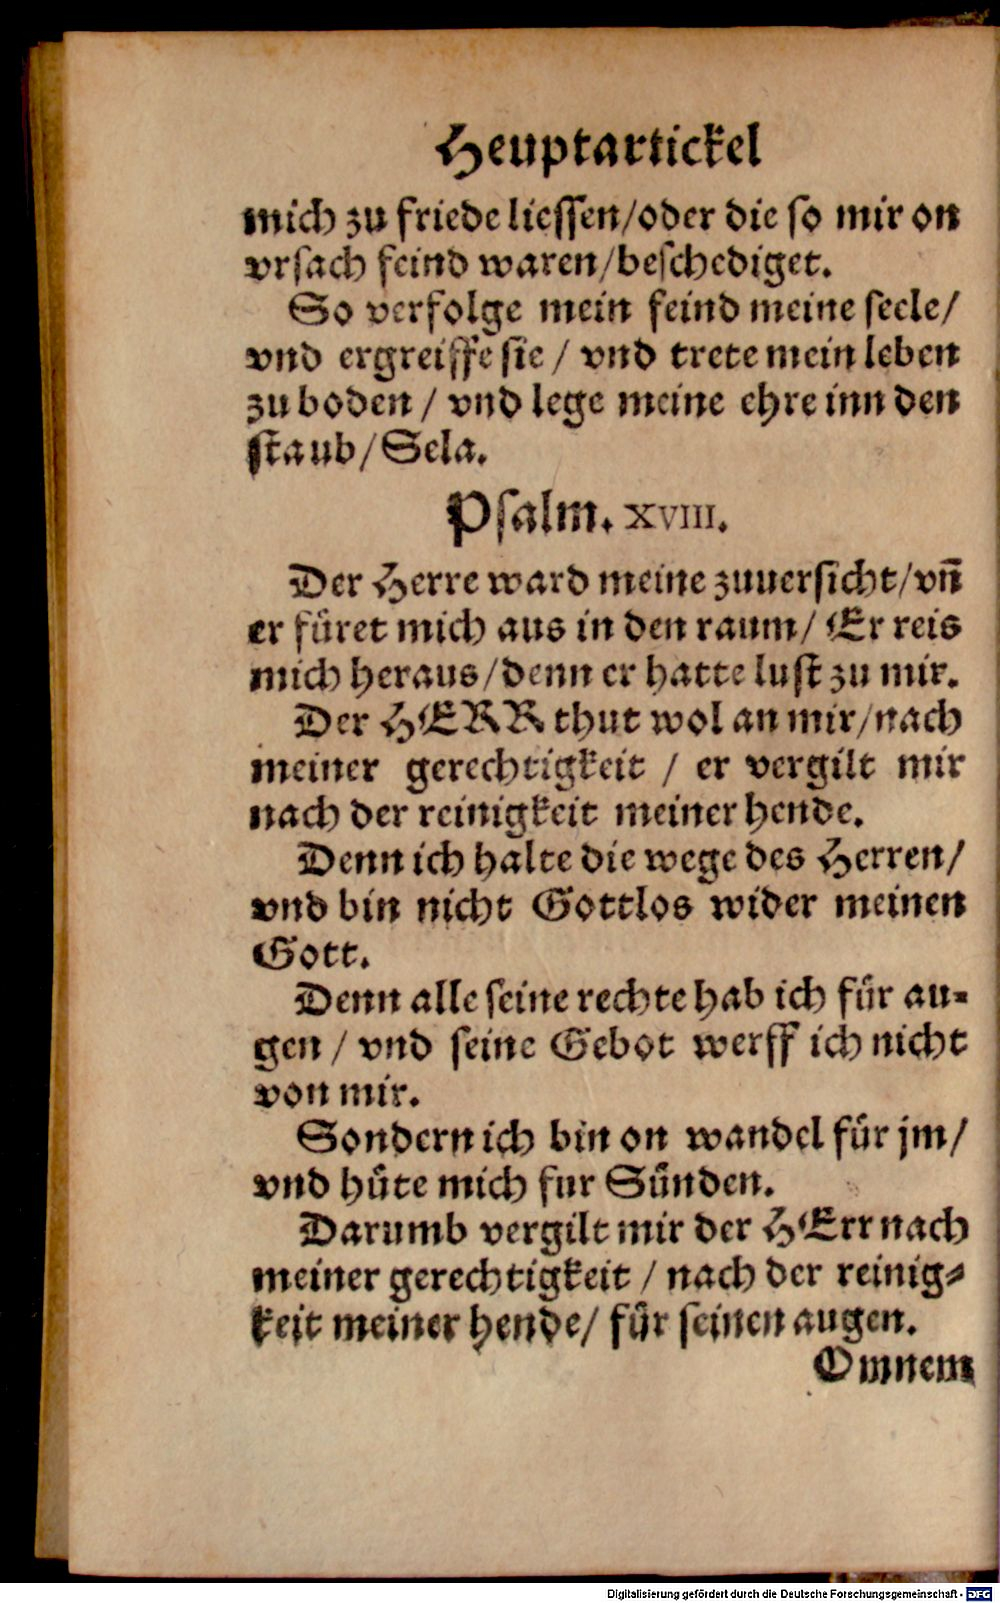 Heuptartickel
mich zu friede liessen/oder die so mir on
vrsach feind waren/beschediget.
So verfolge mein feind meine seele/
vnd ergreiffe sie / vnd trete mein leben
zu boden / vnd lege meine ehre inn den
staub/Sela.
Psalm. XVIII.
Der Herre ward meine zuuersicht/vn̄
er fuͤret mich aus in den raum/ Er reis
mich heraus/denn er hatte lust zu mir.
Der HERR thut wol an mir/nach
meiner gerechtigkeit / er vergilt mir
nach der reinigkeit meiner hende.
Denn ich halte die wege des Herren/
vnd bin nicht Gottlos wider meinen
Gott.
Denn alle seine rechte hab ich fuͤr au-
gen / vnd seine Gebot werff ich nicht
von mir.
Sondern ich bin on wandel fuͤr jm/
vnd huͤte mich fur Suͤnden.
Darumb vergilt mir der HErr nach
meiner gerechtigkeit / nach der reinig-
keit meiner hende/ fuͤr seinen augen.
Omnem
Digitalisierung gefördert durch die Deutsche Forschungsgemeinschaft - DFG